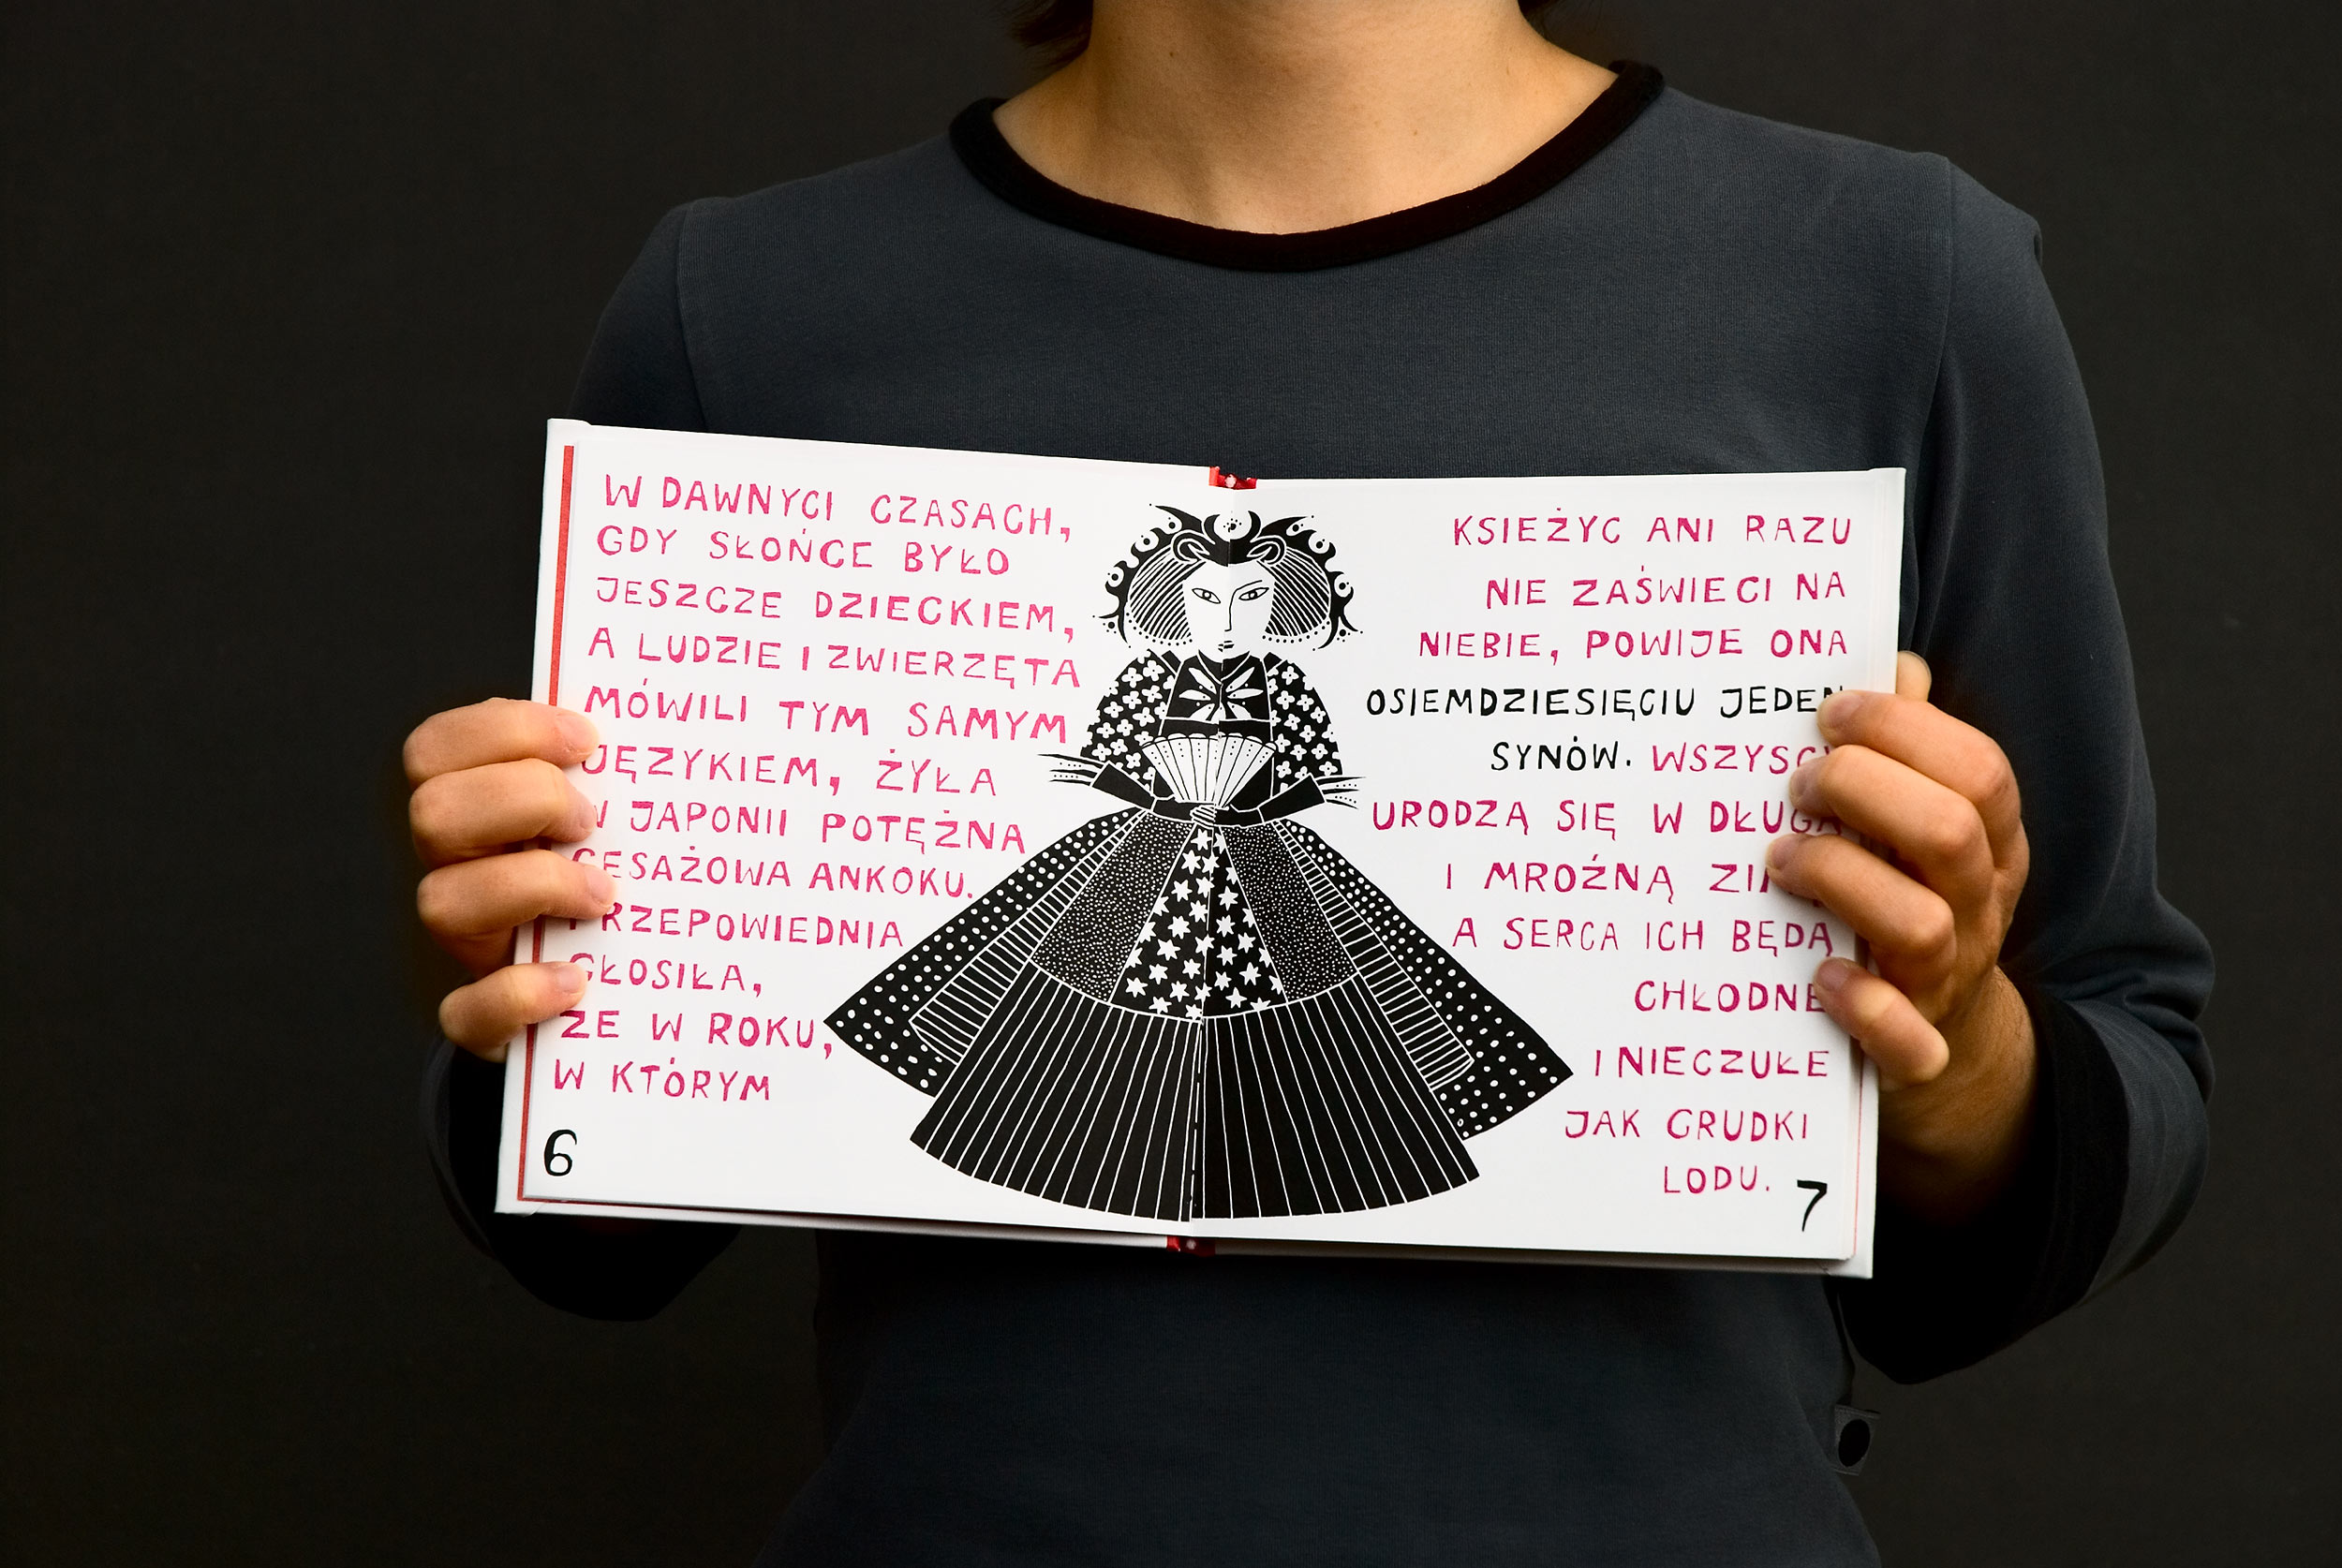 W DAWNYCI CZASACH,
GDY SŁOŃCE BYŁO
JESZCZE DZIECKIEM,
A LUDZIE I ZWIERZĘTA
MÓWILI TYM SAMYM
JĘZYKIEM, ŻYŁA
W JAPONII POTĘŻNA
CESAŻOWA ANKOKU.
PRZEPOWIEDNIA
GŁOSIŁA,
ŻE W ROKU,
W KTÓRYM
6
KSIEŻYC ANI RAZU
NIE ZAŚWIECI NA
NIEBIE, POWIJE ONA
OSIEMDZIESIĘCIU JEDEN
SYNÓW. WSZYSCY
URODZĄ SIĘ W DŁUGĄ
I MROŹNĄ
A SERCA ICH BĘDĄ
CHŁODNE
I NIECZUŁE
JAK GRUDKI
LODU.
7